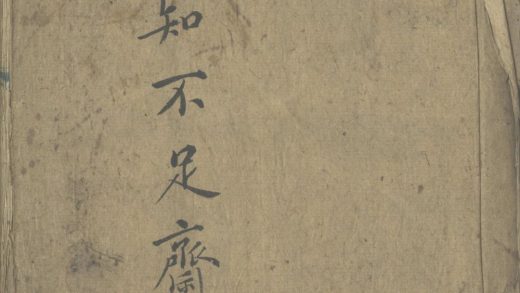 知不足齋